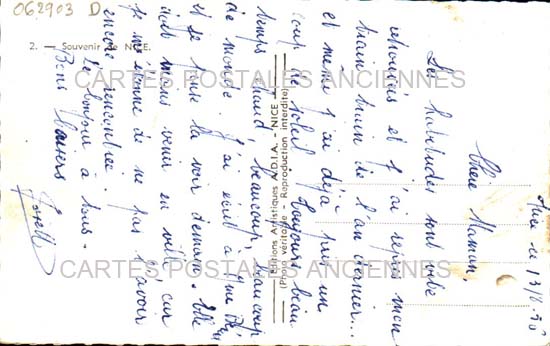 062903 D
2. — Souvenir de NICE.
Editions Artistiques "A.D.I.A." - NICE
(Photo véritable - Reproduction interdite)
CARTES POSTALES ANCIENNES
CARTES POSTALES ANCIENNES
Nice le 13/8/50
Chère Maman,
Les habitudes sont vite
reprises et j'ai repris mon
train train de l'an dernier...
et même j'ai déjà pris un
coup de soleil. Toujours beau
temps chaud, beaucoup, beaucoup
de monde. J'ai écrit à
et je pense la voir demain. Elle
doit venir en ville car
je m'étonne de ne pas l'avoir
encore rencontrée.
Le bonjour à tous.
Bons baisers